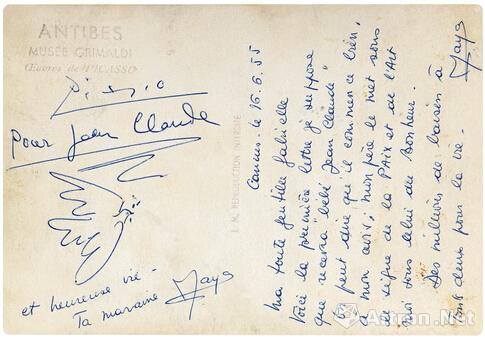 ANTIBES
MUSÉE GRIMALDI
Œuvres de PICASSO
Picasso
Pour Jean Claude
et heureuse vie -
Ta marraine Maya
REPRODUCTION INTERDITE
Cannes. le 16.6.55
Ma toute gentille Gabrielle
Voici la première lettre je suppose
que recevra bébé "Jean Claude"
On peut dire que il commence bien,
à mon avis; mon père le met sous
le signe de la PAix et de l'Art
moi sous celui du Bonheur.
Des milliers de baisers à
tout deux pour la vie -
Maya
Artron.Net